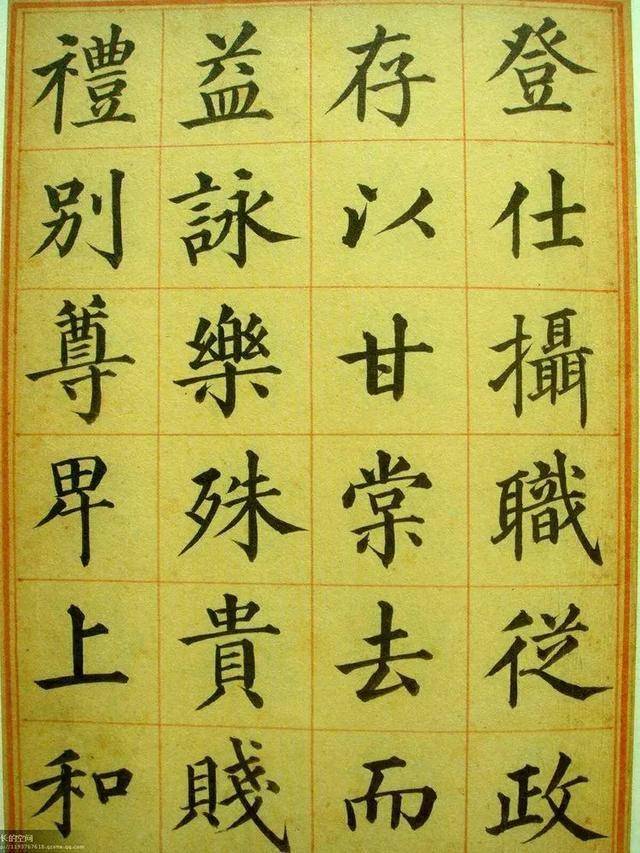 登仕攝職從政
存以甘棠去而
益詠樂殊貴賤
禮別尊卑上和
长的空间